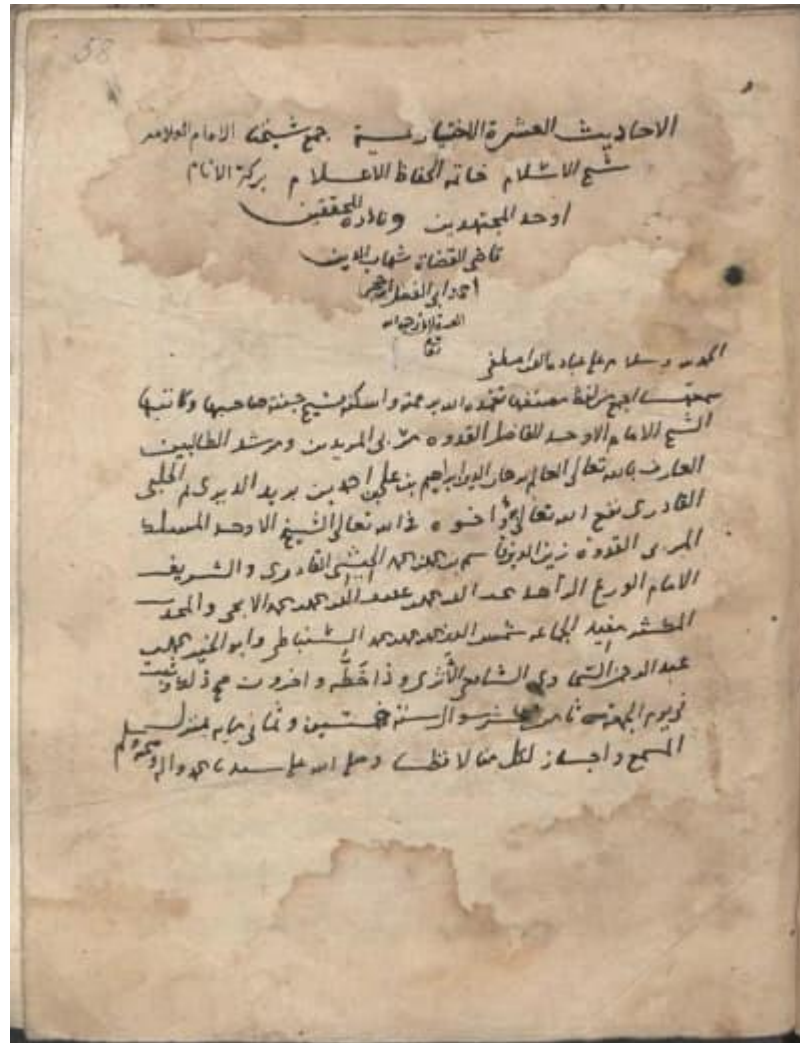 58
الاحاديث العشرة الاختيارية جمع شيخنا الامام العلامة
شيخ الاسلام خاتمة الحفاظ الاعلام بركة الانام
اوحد المجتهدين ونادرة المحققين
قاضى القضاة شهاب الدين
احمد ابى الفضل بن حجر
تعالى
الحمد لله وسلام على عباده الذين اصطفى
سمعها اجمع من لفظ مصنفها تغمده الله برحمته واسكنه فسيح جنته صاحبها وكاتبها
الشيخ الامام الاوحد الفاضل القدوه مربى المريدين ومرشد الطالبين
العارف بالله تعالى العالم برهان الدين ابراهيم بن على بن احمد بن بريد الديرى ثم الحلبى
القادرى نفع الله تعالى به واخوه فى الله تعالى الشيخ الاوحد المسلك
المربى القدوه زين الدين قاسم بن محمد بن محمد الحيشى القادرى والشريف
الامام الورع الزاهد
مفيد الجماعه شمس الدين محمد بن محمد بن محمد السنباطى وابو الخير محمد بن
عبد الرحمن السخاوى الشافعى الاثرى وذا خطه واخرون صح ذلك وثبت
فى يوم الجمعة ثامن عشر شوال سنة خمسين وثمانى مايه بمنزل
المسمع واجاز لكل منا لافظا وصلى الله على سيدنا محمد واله وصحبه وسلم